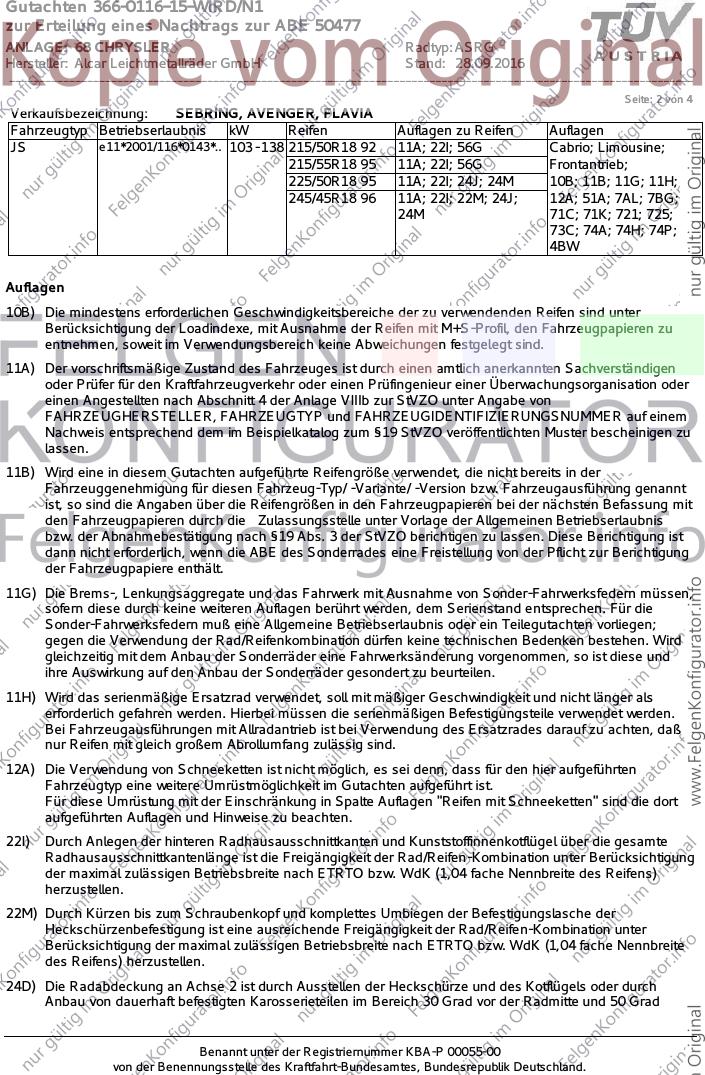 Gutachten 366-0116-15-WIRD/N1
zur Erteilung eines Nachtrags zur ABE 50477
ANLAGE: 68 CHRYSLER
Hersteller: Alcar Leichtmetallräder GmbH
Radtyp: ASRG
Stand: 28.09.2016
TÜV
AUSTRIA
Kopie vom Original
Seite: 2 von 4
Verkaufsbezeichnung: SEBRING, AVENGER, FLAVIA
Fahrzeugtyp Betriebserlaubnis kW Reifen Auflagen zu Reifen Auflagen
JS e11*2001/116*0143*.. 103-138 215/50R18 92 11A; 22I; 56G Cabrio; Limousine;
215/55R18 95 11A; 22I; 56G Frontantrieb;
225/50R18 95 11A; 22I; 24J; 24M 10B; 11B; 11G; 11H;
245/45R18 96 11A; 22I; 22M; 24J; 12A; 51A; 7AL; 7BG;
24M 71C; 71K; 721; 725;
73C; 74A; 74H; 74P;
4BW
Auflagen
10B) Die mindestens erforderlichen Geschwindigkeitsbereiche der zu verwendenden Reifen sind unter
Berücksichtigung der Loadindexe, mit Ausnahme der Reifen mit M+S-Profil, den Fahrzeugpapieren zu
entnehmen, soweit im Verwendungsbereich keine Abweichungen festgelegt sind.
11A) Der vorschriftsmäßige Zustand des Fahrzeuges ist durch einen amtlich anerkannten Sachverständigen
oder Prüfer für den Kraftfahrzeugverkehr oder einen Prüfingenieur einer Überwachungsorganisation oder
einen Angestellten nach Abschnitt 4 der Anlage VIIIb zur StVZO unter Angabe von
FAHRZEUGHERSTELLER, FAHRZEUGTYP und FAHRZEUGIDENTIFIZIERUNGSNUMMER auf einem
Nachweis entsprechend dem im Beispielkatalog zum §19 StVZO veröffentlichten Muster bescheinigen zu
lassen.
11B) Wird eine in diesem Gutachten aufgeführte Reifengröße verwendet, die nicht bereits in der
Fahrzeuggenehmigung für diesen Fahrzeug-Typ/ -Variante/ -Version bzw. Fahrzeugausführung genannt
ist, so sind die Angaben über die Reifengrößen in den Fahrzeugpapieren bei der nächsten Befassung mit
den Fahrzeugpapieren durch die Zulassungsstelle unter Vorlage der Allgemeinen Betriebserlaubnis
bzw. der Abnahmebestätigung nach §19 Abs. 3 der StVZO berichtigen zu lassen. Diese Berichtigung ist
dann nicht erforderlich, wenn die ABE des Sonderrades eine Freistellung von der Pflicht zur Berichtigung
der Fahrzeugpapiere enthält.
11G) Die Brems-, Lenkungsaggregate und das Fahrwerk mit Ausnahme von Sonder-Fahrwerksfedern müssen,
sofern diese durch keine weiteren Auflagen berührt werden, dem Serienstand entsprechen. Für die
Sonder-Fahrwerksfedern muß eine Allgemeine Betriebserlaubnis oder ein Teilegutachten vorliegen;
gegen die Verwendung der Rad/Reifenkombination dürfen keine technischen Bedenken bestehen. Wird
gleichzeitig mit dem Anbau der Sonderräder eine Fahrwerksänderung vorgenommen, so ist diese und
ihre Auswirkung auf den Anbau der Sonderräder gesondert zu beurteilen.
11H) Wird das serienmäßige Ersatzrad verwendet, soll mit mäßiger Geschwindigkeit und nicht länger als
erforderlich gefahren werden. Hierbei müssen die serienmäßigen Befestigungsteile verwendet werden.
Bei Fahrzeugausführungen mit Allradantrieb ist bei Verwendung des Ersatzrades darauf zu achten, daß
nur Reifen mit gleich großem Abrollumfang zulässig sind.
12A) Die Verwendung von Schneeketten ist nicht möglich, es sei denn, dass für den hier aufgeführten
Fahrzeugtyp eine weitere Umrüstmöglichkeit im Gutachten aufgeführt ist.
Für diese Umrüstung mit der Einschränkung in Spalte Auflagen "Reifen mit Schneeketten" sind die dort
aufgeführten Auflagen und Hinweise zu beachten.
22I) Durch Anlegen der hinteren Radhausausschnittkanten und Kunststoffinnenkotflügel über die gesamte
Radhausausschnittkantenlänge ist die Freigängigkeit der Rad/Reifen-Kombination unter Berücksichtigung
der maximal zulässigen Betriebsbreite nach ETRTO bzw. WdK (1,04 fache Nennbreite des Reifens)
herzustellen.
22M) Durch Kürzen bis zum Schraubenkopf und komplettes Umbiegen der Befestigungslasche der
Heckschürzenbefestigung ist eine ausreichende Freigängigkeit der Rad/Reifen-Kombination unter
Berücksichtigung der maximal zulässigen Betriebsbreite nach ETRTO bzw. WdK (1,04 fache Nennbreite
des Reifens) herzustellen.
24D) Die Radabdeckung an Achse 2 ist durch Ausstellen der Heckschürze und des Kotflügels oder durch
Anbau von dauerhaft befestigten Karosserieteilen im Bereich 30 Grad vor der Radmitte und 50 Grad
Benannt unter der Registriernummer KBA-P 00055-00
von der Benennungsstelle des Kraftfahrt-Bundesamtes, Bundesrepublik Deutschland.
FELGEN
KONFIGURATOR
FelgenKonfigurator.info
nur gültig im Original
www.FelgenKonfigurator.info